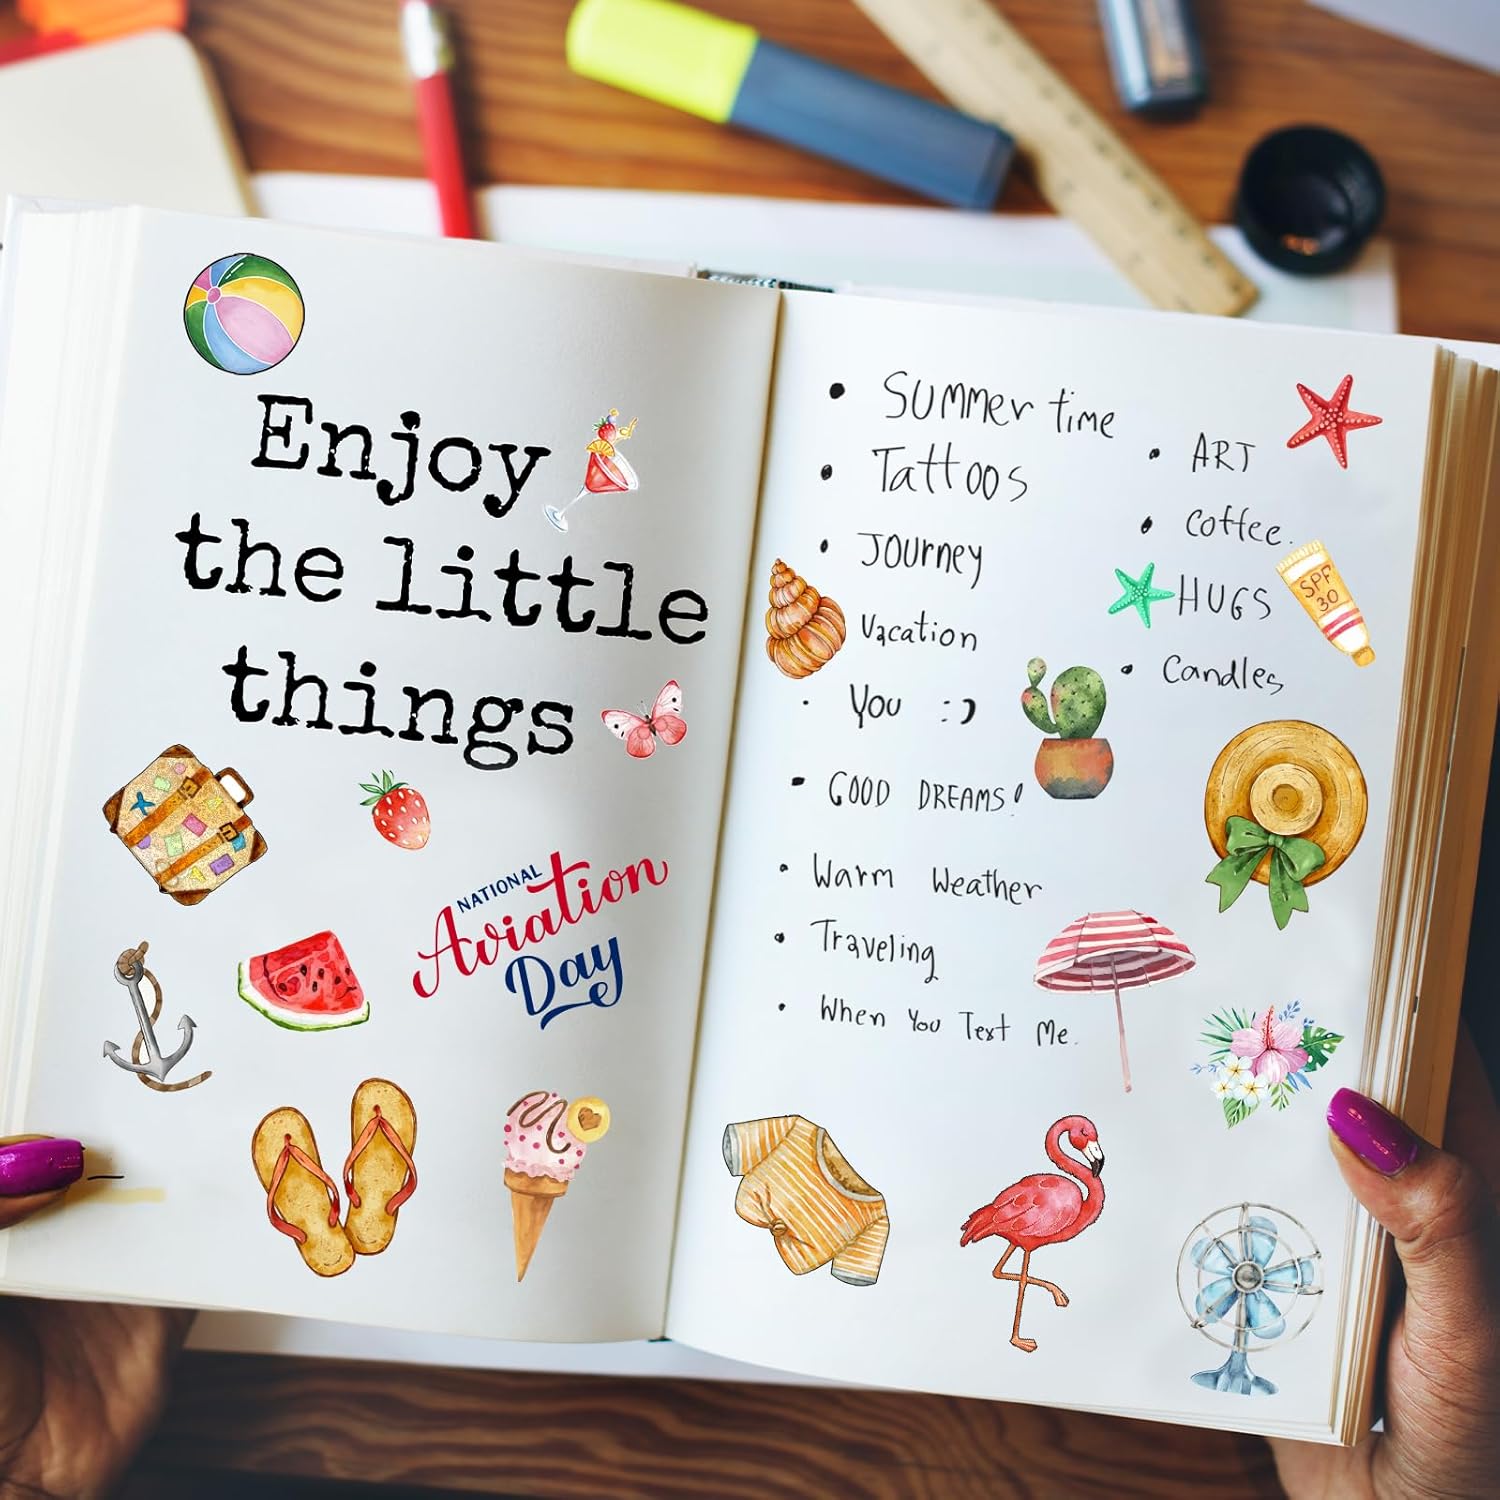 Enjoy
the little
things
NATIONAL
Aviation
Day
• Summer time
• Tattoos
• Journey
Vacation
• You :)
• GOOD DREAMS!
• Warm Weather
• Traveling
• When You Text Me.
• ART
• Coffee.
HUGS
• Candles
SPF
30